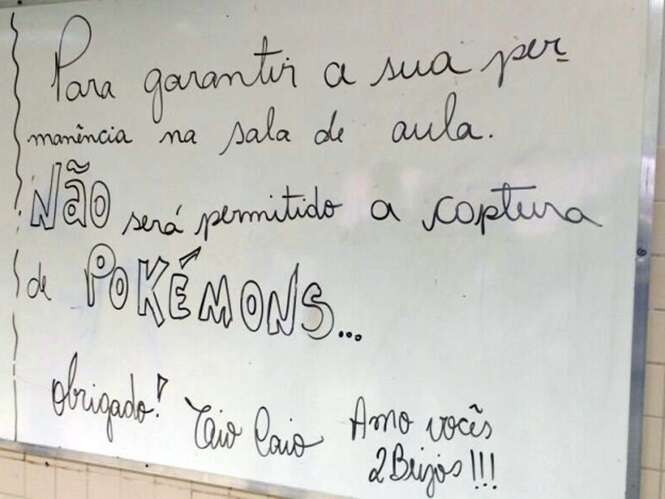 Para garantir a sua per-
manência na sala de aula.
NÃO será permitido a captura
de POKÉMONS...
Obrigado! Taio Caio Amo vocês
2 Beijos!!!